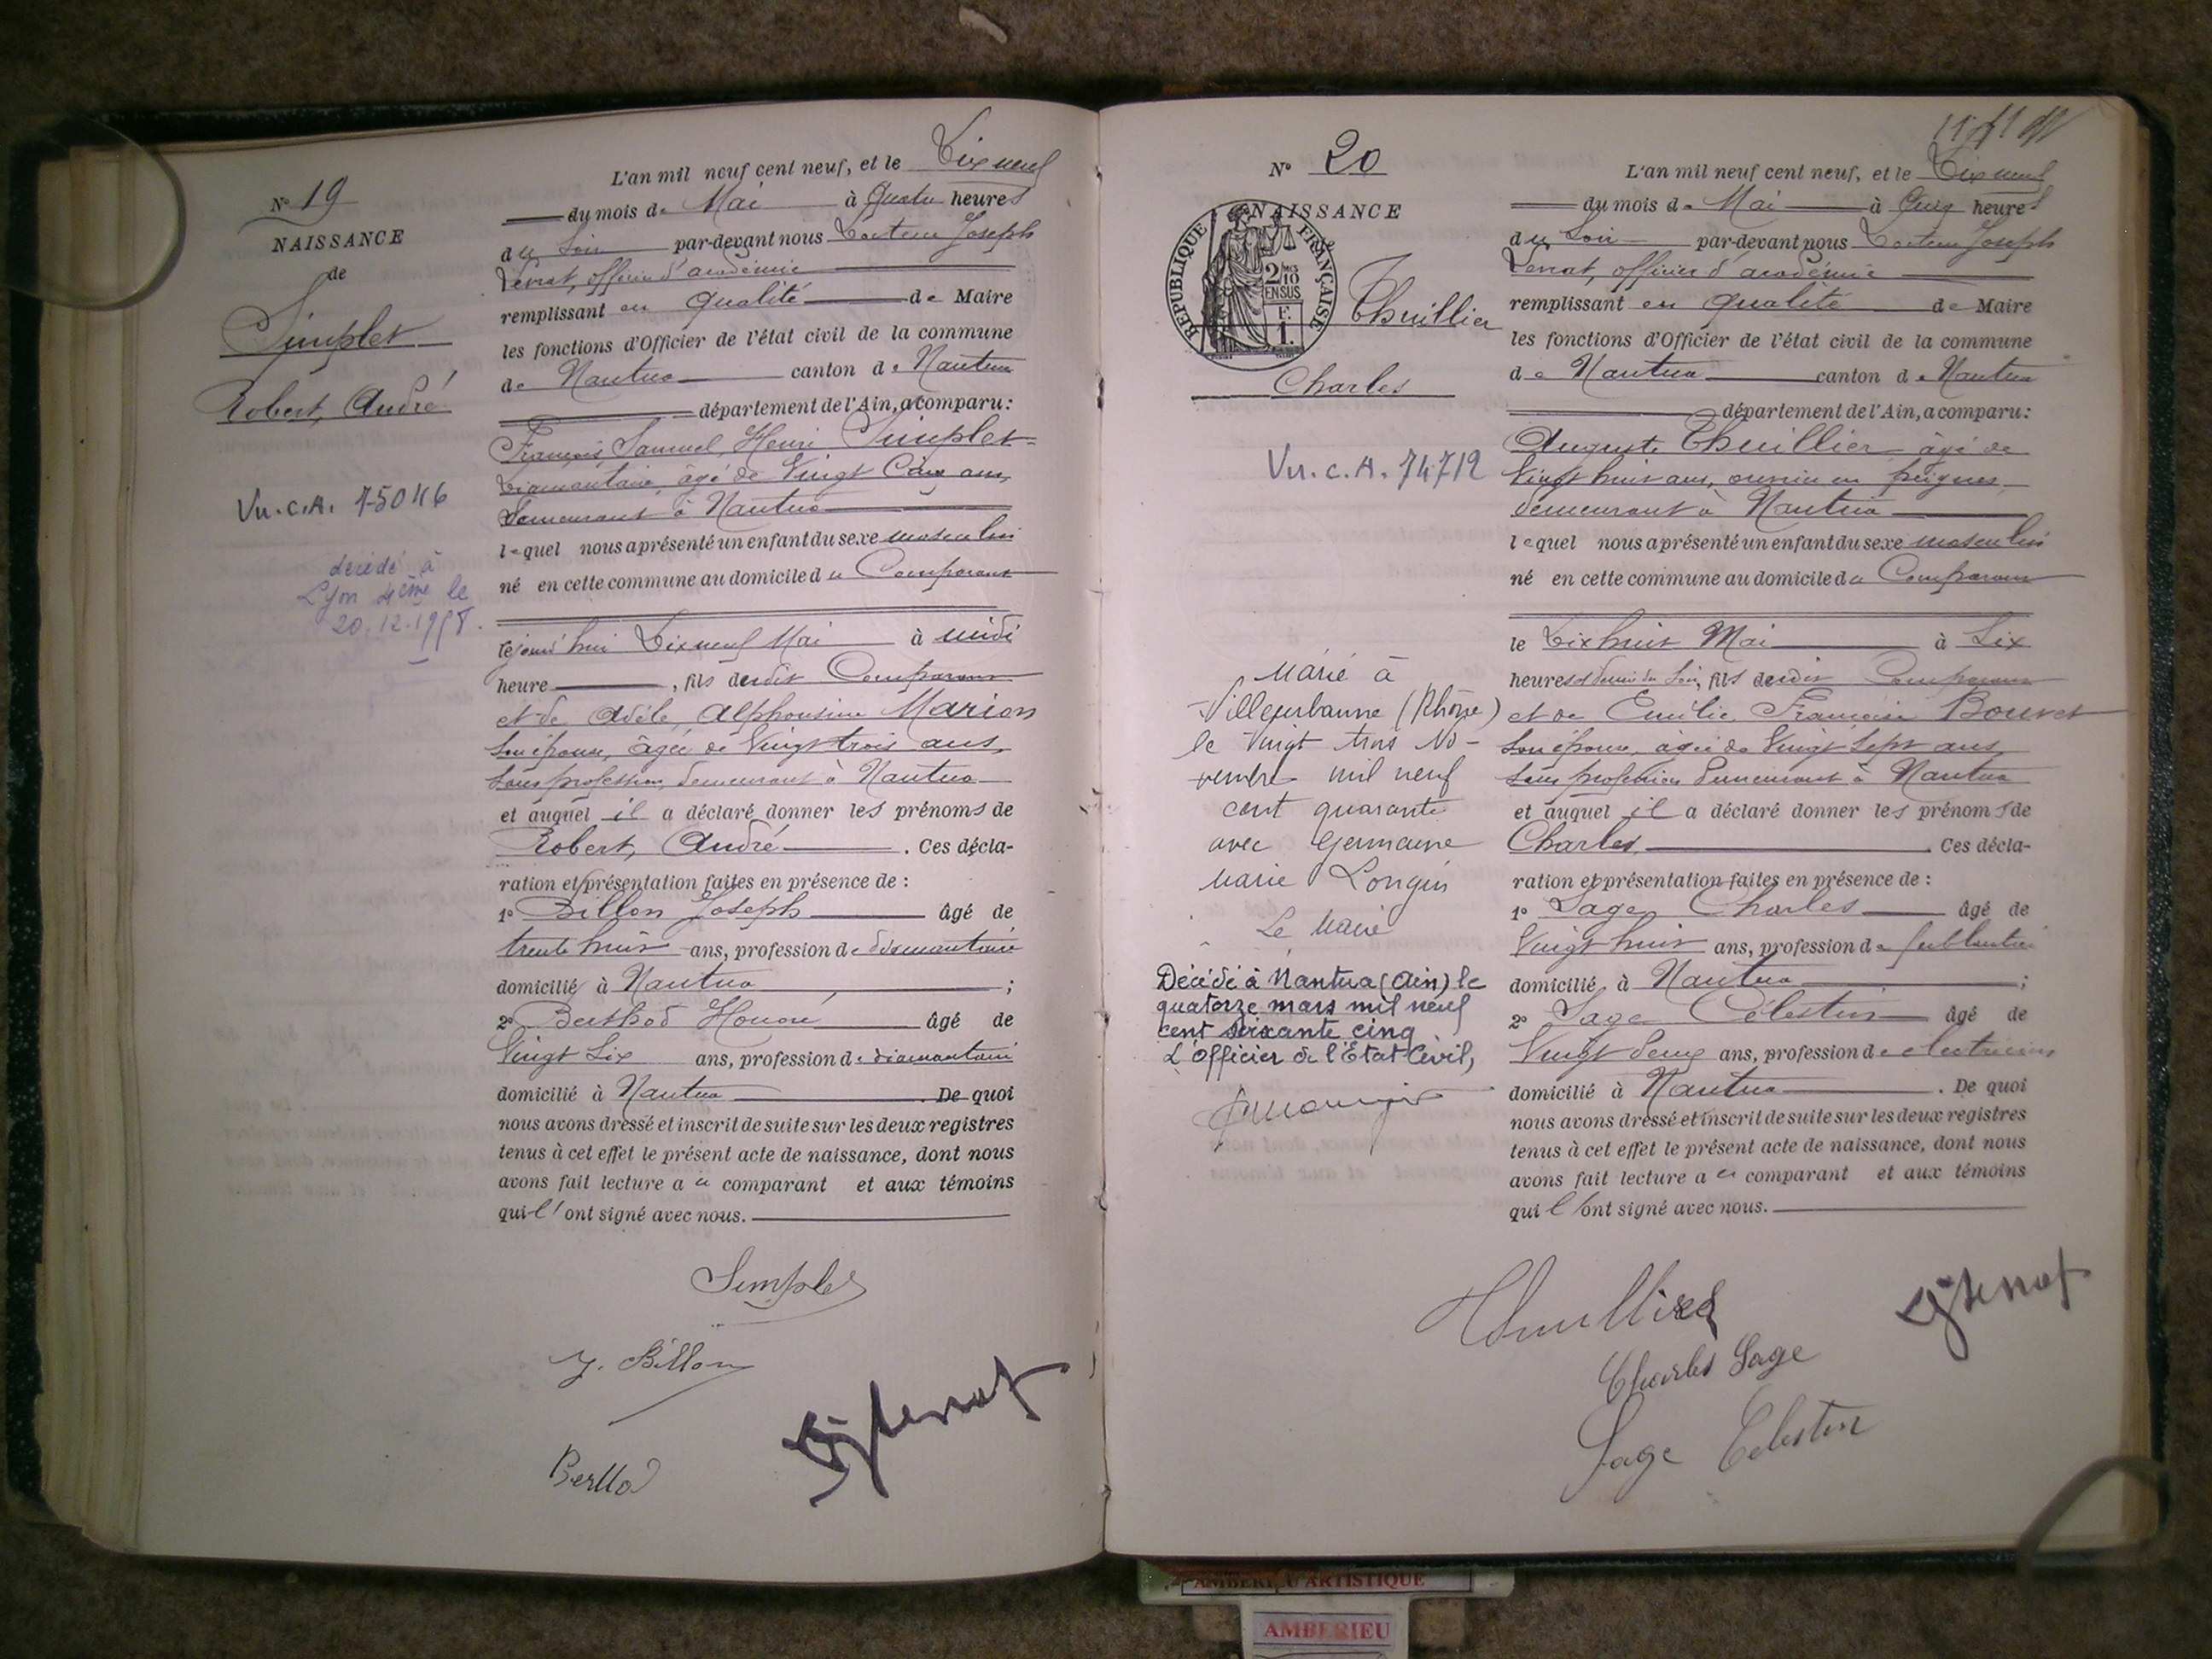 N° 19
NAISSANCE
de
Simplet
Robert, André
Vu. C.A. 75046
décédé à
Lyon 4ème le
20.12.1978.
L'an mil neuf cent neuf, et le Dix neuf
du mois de Mai à Quatre heures
du Soir par-devant nous Docteur Joseph
officier d'académie
remplissant en qualité de Maire
les fonctions d'Officier de l'état civil de la commune
de Nantua canton de Nantua
département de l'Ain, a comparu:
François, Samuel, Henri Simplet
Diamantaire, âgé de Vingt Cinq ans,
Demeurant à Nantua
lequel nous a présenté un enfant du sexe masculin
né en cette commune au domicile du Comparant
cejourd'hui Dix neuf Mai à midi
heure , fils dudit Comparant
et de Adèle, Alphonsine Marion
Son épouse, âgée de Vingt trois ans,
Sans profession, Demeurant à Nantua
et auquel il a déclaré donner les prénoms de
Robert, André . Ces décla-
ration et présentation faites en présence de :
1° Billon Joseph âgé de
trente huit ans, profession de diamantaire
domicilié à Nantua ;
2° Berthod Honoré âgé de
Vingt Six ans, profession de diamantaire
domicilié à Nantua . De quoi
nous avons dressé et inscrit de suite sur les deux registres
tenus à cet effet le présent acte de naissance, dont nous
avons fait lecture au comparant et aux témoins
qui l'ont signé avec nous.
Simplet
J. Billon
Berthod
N° 20
NAISSANCE
REPUBLIQUE FRANÇAISE
2/10
EN SUS
F.
1.
Thuillier
Charles
Vu. C. A. 74712
Marié à
Villeurbanne (Rhône)
le vingt trois No-
vembre mil neuf
cent quarante
avec Germaine
Marie Longin
Le Maire
Décédé à Nantua (Ain) le
quatorze mars mil neuf
cent soixante cinq
L'Officier de l'Etat Civil,
L'an mil neuf cent neuf, et le Dix neuf
du mois de Mai à Cinq heures
du Soir par-devant nous Docteur Joseph
officier d'académie
remplissant en qualité de Maire
les fonctions d'Officier de l'état civil de la commune
de Nantua canton de Nantua
département de l'Ain, a comparu:
Auguste Thuillier âgé de
Vingt huit ans, ouvrier en peignes,
demeurant à Nantua
lequel nous a présenté un enfant du sexe masculin
né en cette commune au domicile du Comparant
le Dix huit Mai à Six
heures et demie du Soir, fils dudit Comparant
et de Emilie, Françoise Bouvet
Son épouse, âgée de Vingt Sept ans,
Sans profession Demeurant à Nantua
et auquel il a déclaré donner les prénoms de
Charles . Ces décla-
ration et présentation faites en présence de :
1° Sage Charles âgé de
Vingt huit ans, profession de ferblantier
domicilié à Nantua ;
2° Sage Célestin âgé de
Vingt Deux ans, profession de electricien
domicilié à Nantua . De quoi
nous avons dressé et inscrit de suite sur les deux registres
tenus à cet effet le présent acte de naissance, dont nous
avons fait lecture au comparant et aux témoins
qui l'ont signé avec nous.
Thuillier
Charles Sage
Sage Célestin
AMBERIEU ARTISTIQUE
AMBERIEU